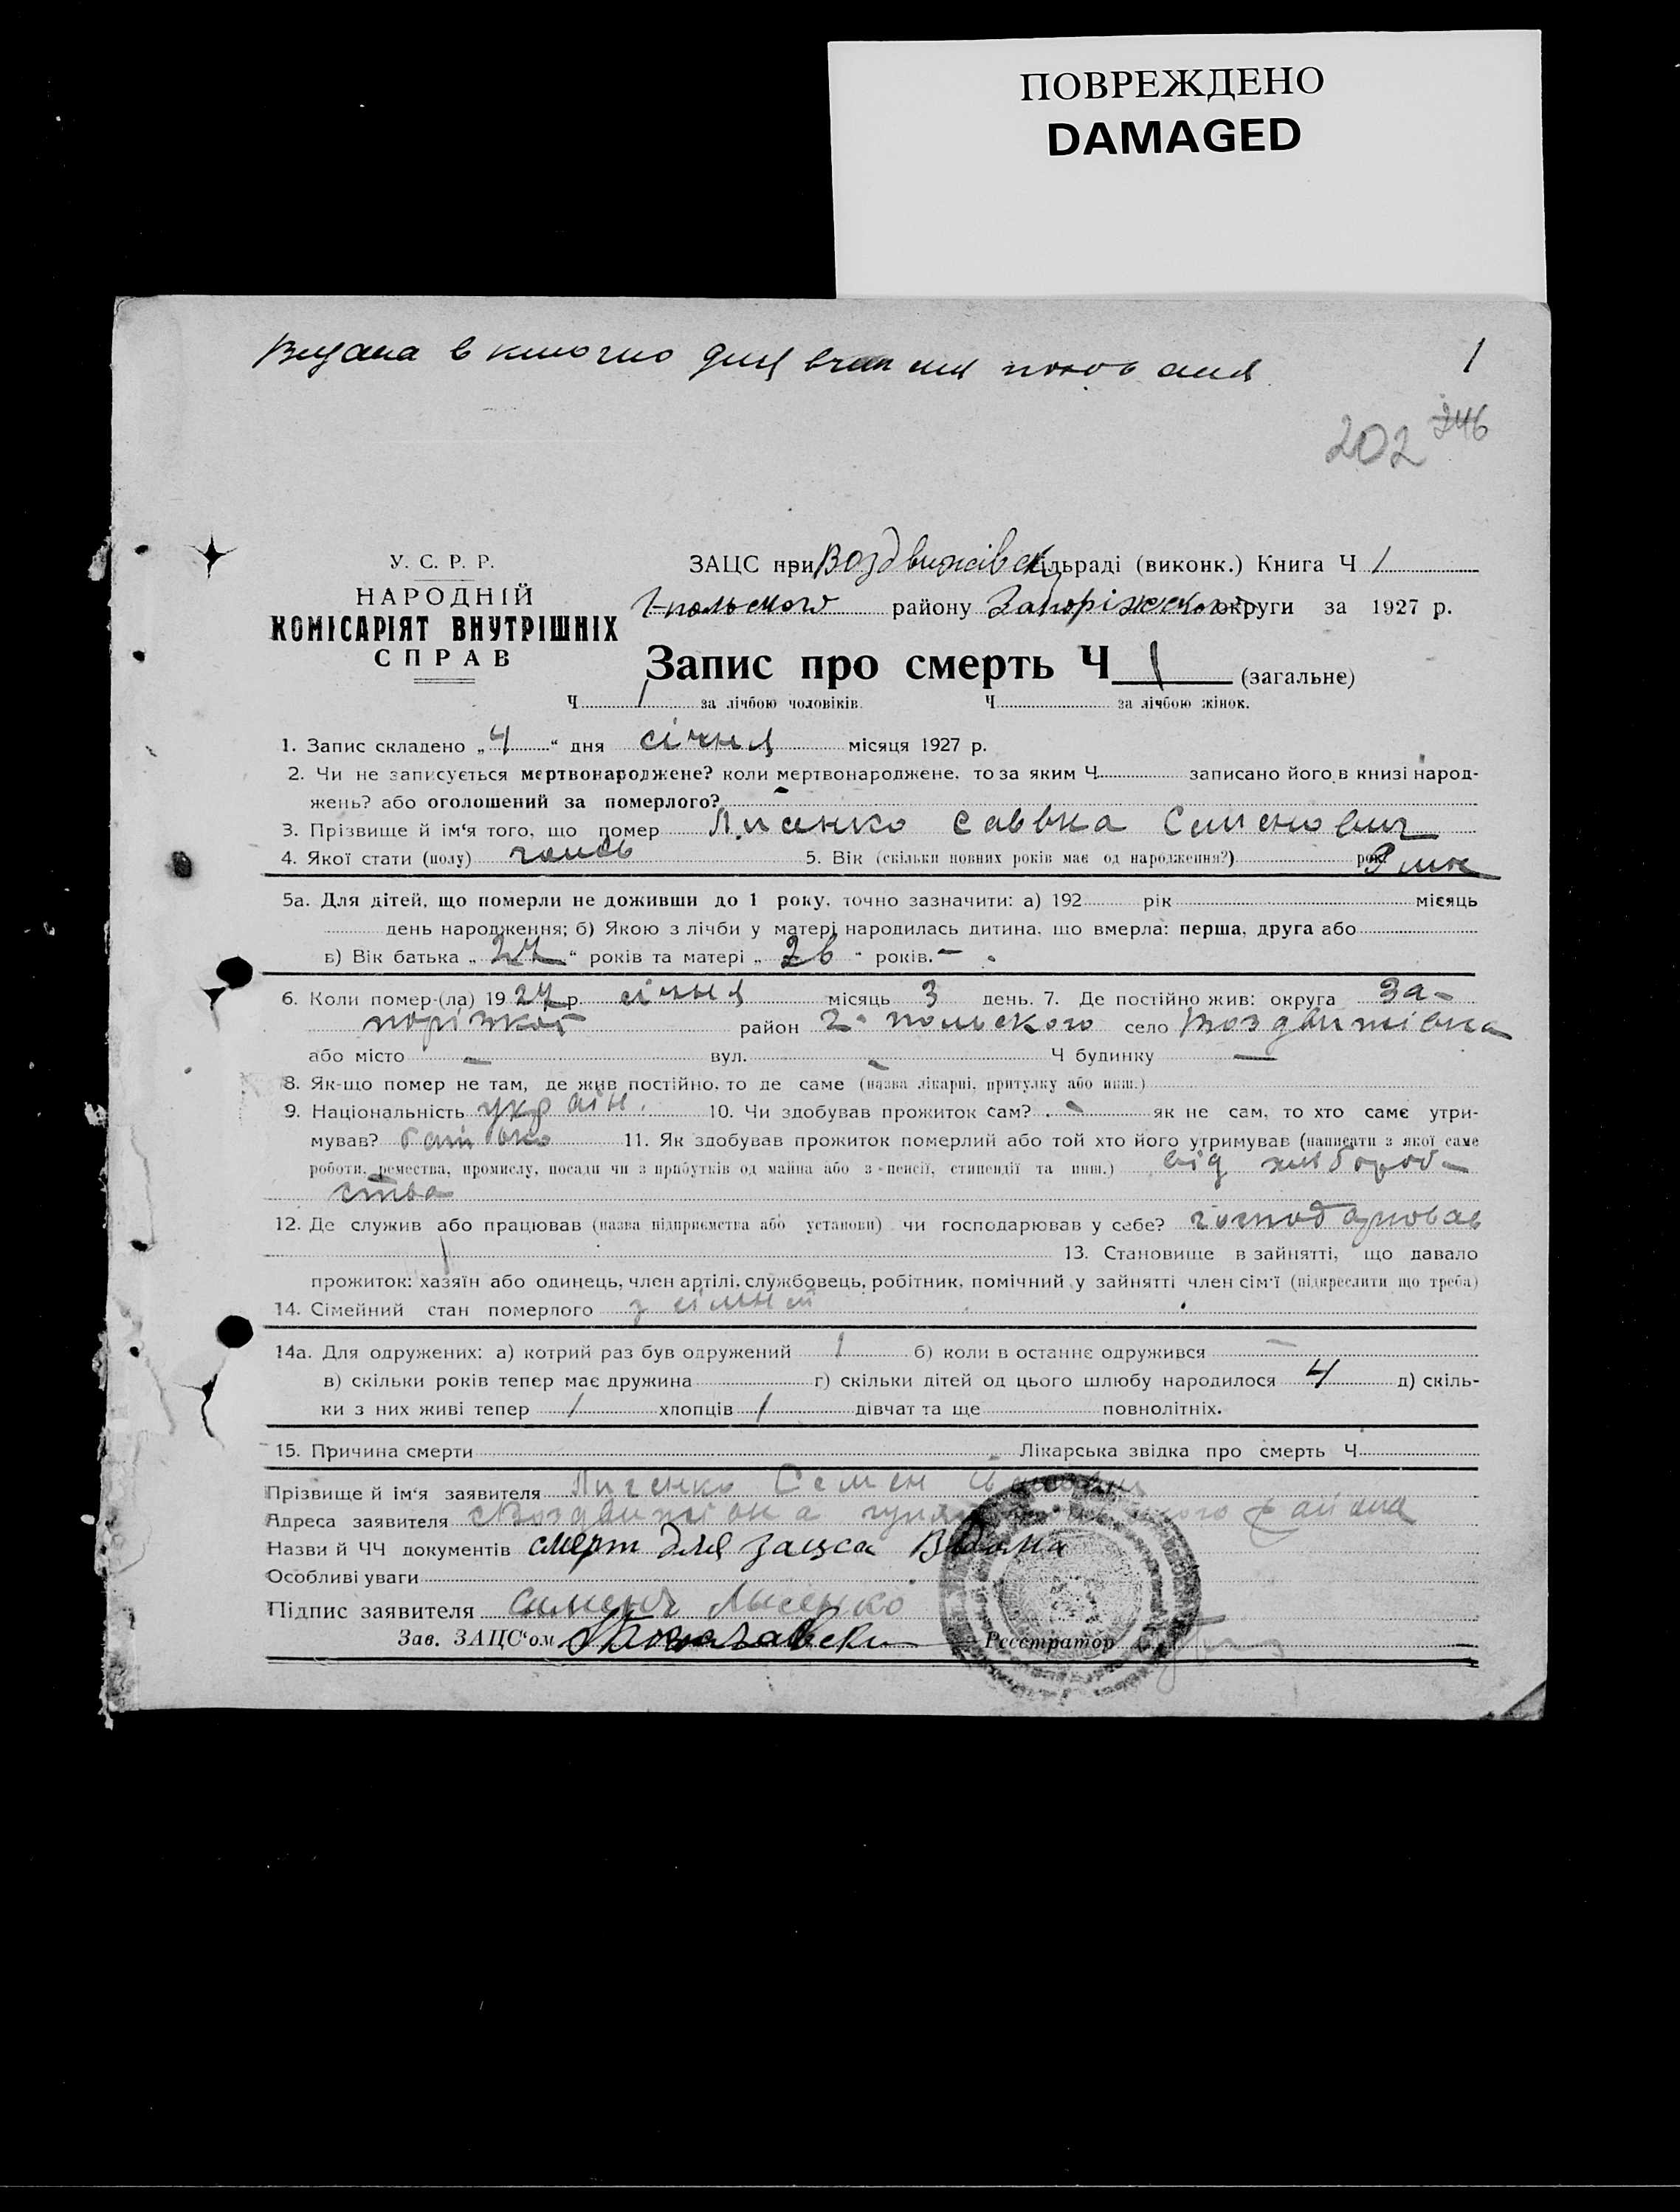 ПОВРЕЖДЕНО
DAMAGED
1
202 246
У. С. Р. Р.
НАРОДНІЙ
КОМІСАРІЯТ ВНУТРІШНІХ
СПРАВ
ЗАЦС при Воздвижівск сільраді (виконк.) Книга Ч 1
Г-польского району Запоріжжкої округи за 1927 р.
Запис про смерть Ч 1 (загальне)
Ч 1 за лічбою чоловіків. Ч за лічбою жінок.
1. Запис складено „ 4 “ дня січня місяця 1927 р.
2. Чи не записується мертвонароджене? коли мертвонароджене, то за яким Ч записано його в книзі народ-
жень? або оголошений за померлого? -
3. Прізвище й ім‘я того, що помер Лисенко Саввка Семенович
4. Якої стати (полу) чолов 5. Вік (скільки повних років має од народження?) рок.
5а. Для дітей, що померли не доживши до 1 року, точно зазначити: а) 192 рік місяць
день народження; б) Якою з лічби у матері народилась дитина, що вмерла: перша, друга або
в) Вік батька „ 27 “ років та матері „ 26 “ років. -
6. Коли помер-(ла) 19 27 р. січня місяць 3 день. 7. Де постійно жив: округа За-
поріжкої район Г-польского село Воздвижівка
або місто - вул. - Ч будинку -
8. Як-що помер не там, де жив постійно, то де саме (назва лікарні, притулку або инш.)
9. Національність україн. 10. Чи здобував прожиток сам? - як не сам, то хто саме утри-
мував? батько 11. Як здобував прожиток померлий або той хто його утримував (написати з якої саме
роботи, ремества, промислу, посади чи з прибутків од майна або з пенсії, стипендії та инш.) від хлібороб-
ства
12. Де служив або працював (назва підприємства або установи) чи господарював у себе? господарював
13. Становище в зайнятті, що давало
прожиток: хазяїн або одинець, член артілі, службовець, робітник, помічний у зайнятті член сім‘ї (підкреслити що треба)
14. Сімейний стан померлого
14а. Для одружених: а) котрий раз був одружений 1 б) коли в останнє одружився -
в) скільки років тепер має дружина г) скільки дітей од цього шлюбу народилося 4 д) скіль-
ки з них живі тепер 1 хлопців 1 дівчат та ще повнолітніх.
15. Причина смерти Лікарська звідка про смерть Ч
Прізвище й ім‘я заявителя Лисенко Семен
Адреса заявителя Воздвижівка района
Назви й ЧЧ документів смерт для зацса Видана
Особливі уваги
Підпис заявителя Лысенко
Зав. ЗАЦС‘ом Реєстратор